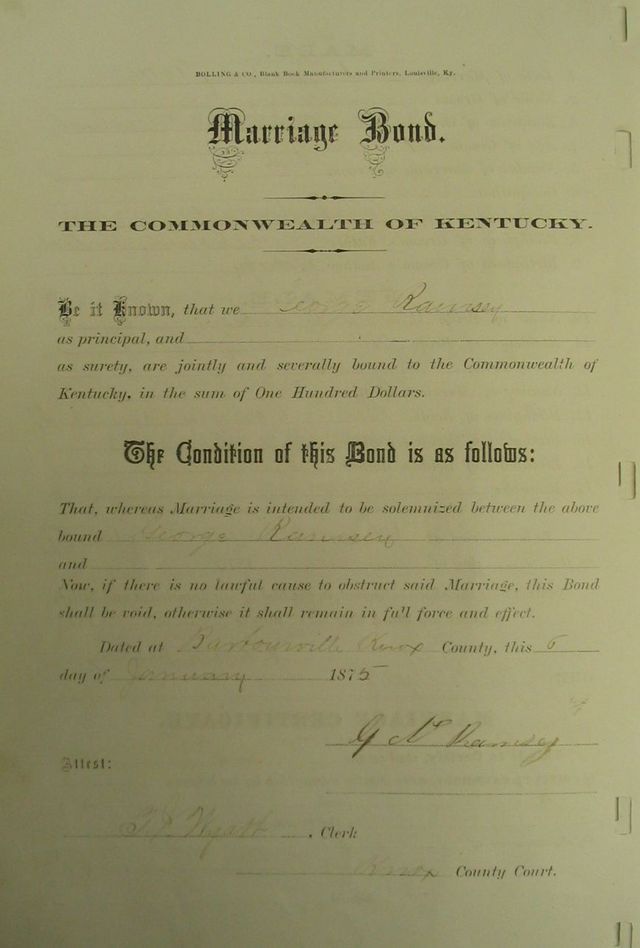 BOLLING & CO., Blank Book Manufacturers and Printers, Louisville, Ky.
Marriage Bond.
THE COMMONWEALTH OF KENTUCKY.
Be it Known, that we George Ramsey
as principal, and
as surety, are jointly and severally bound to the Commonwealth of
Kentucky, in the sum of One Hundred Dollars.
The Condition of this Bond is as follows:
That, whereas Marriage is intended to be solemnized between the above
bound George Ramsey
and
Now, if there is no lawful cause to obstruct said Marriage, this Bond
shall be void, otherwise it shall remain in full force and effect.
Dated at Barbourville Knox County, this 6
day of January 1875
G N Ramsey
Attest:
Wyatt, Clerk
Knox County Court.